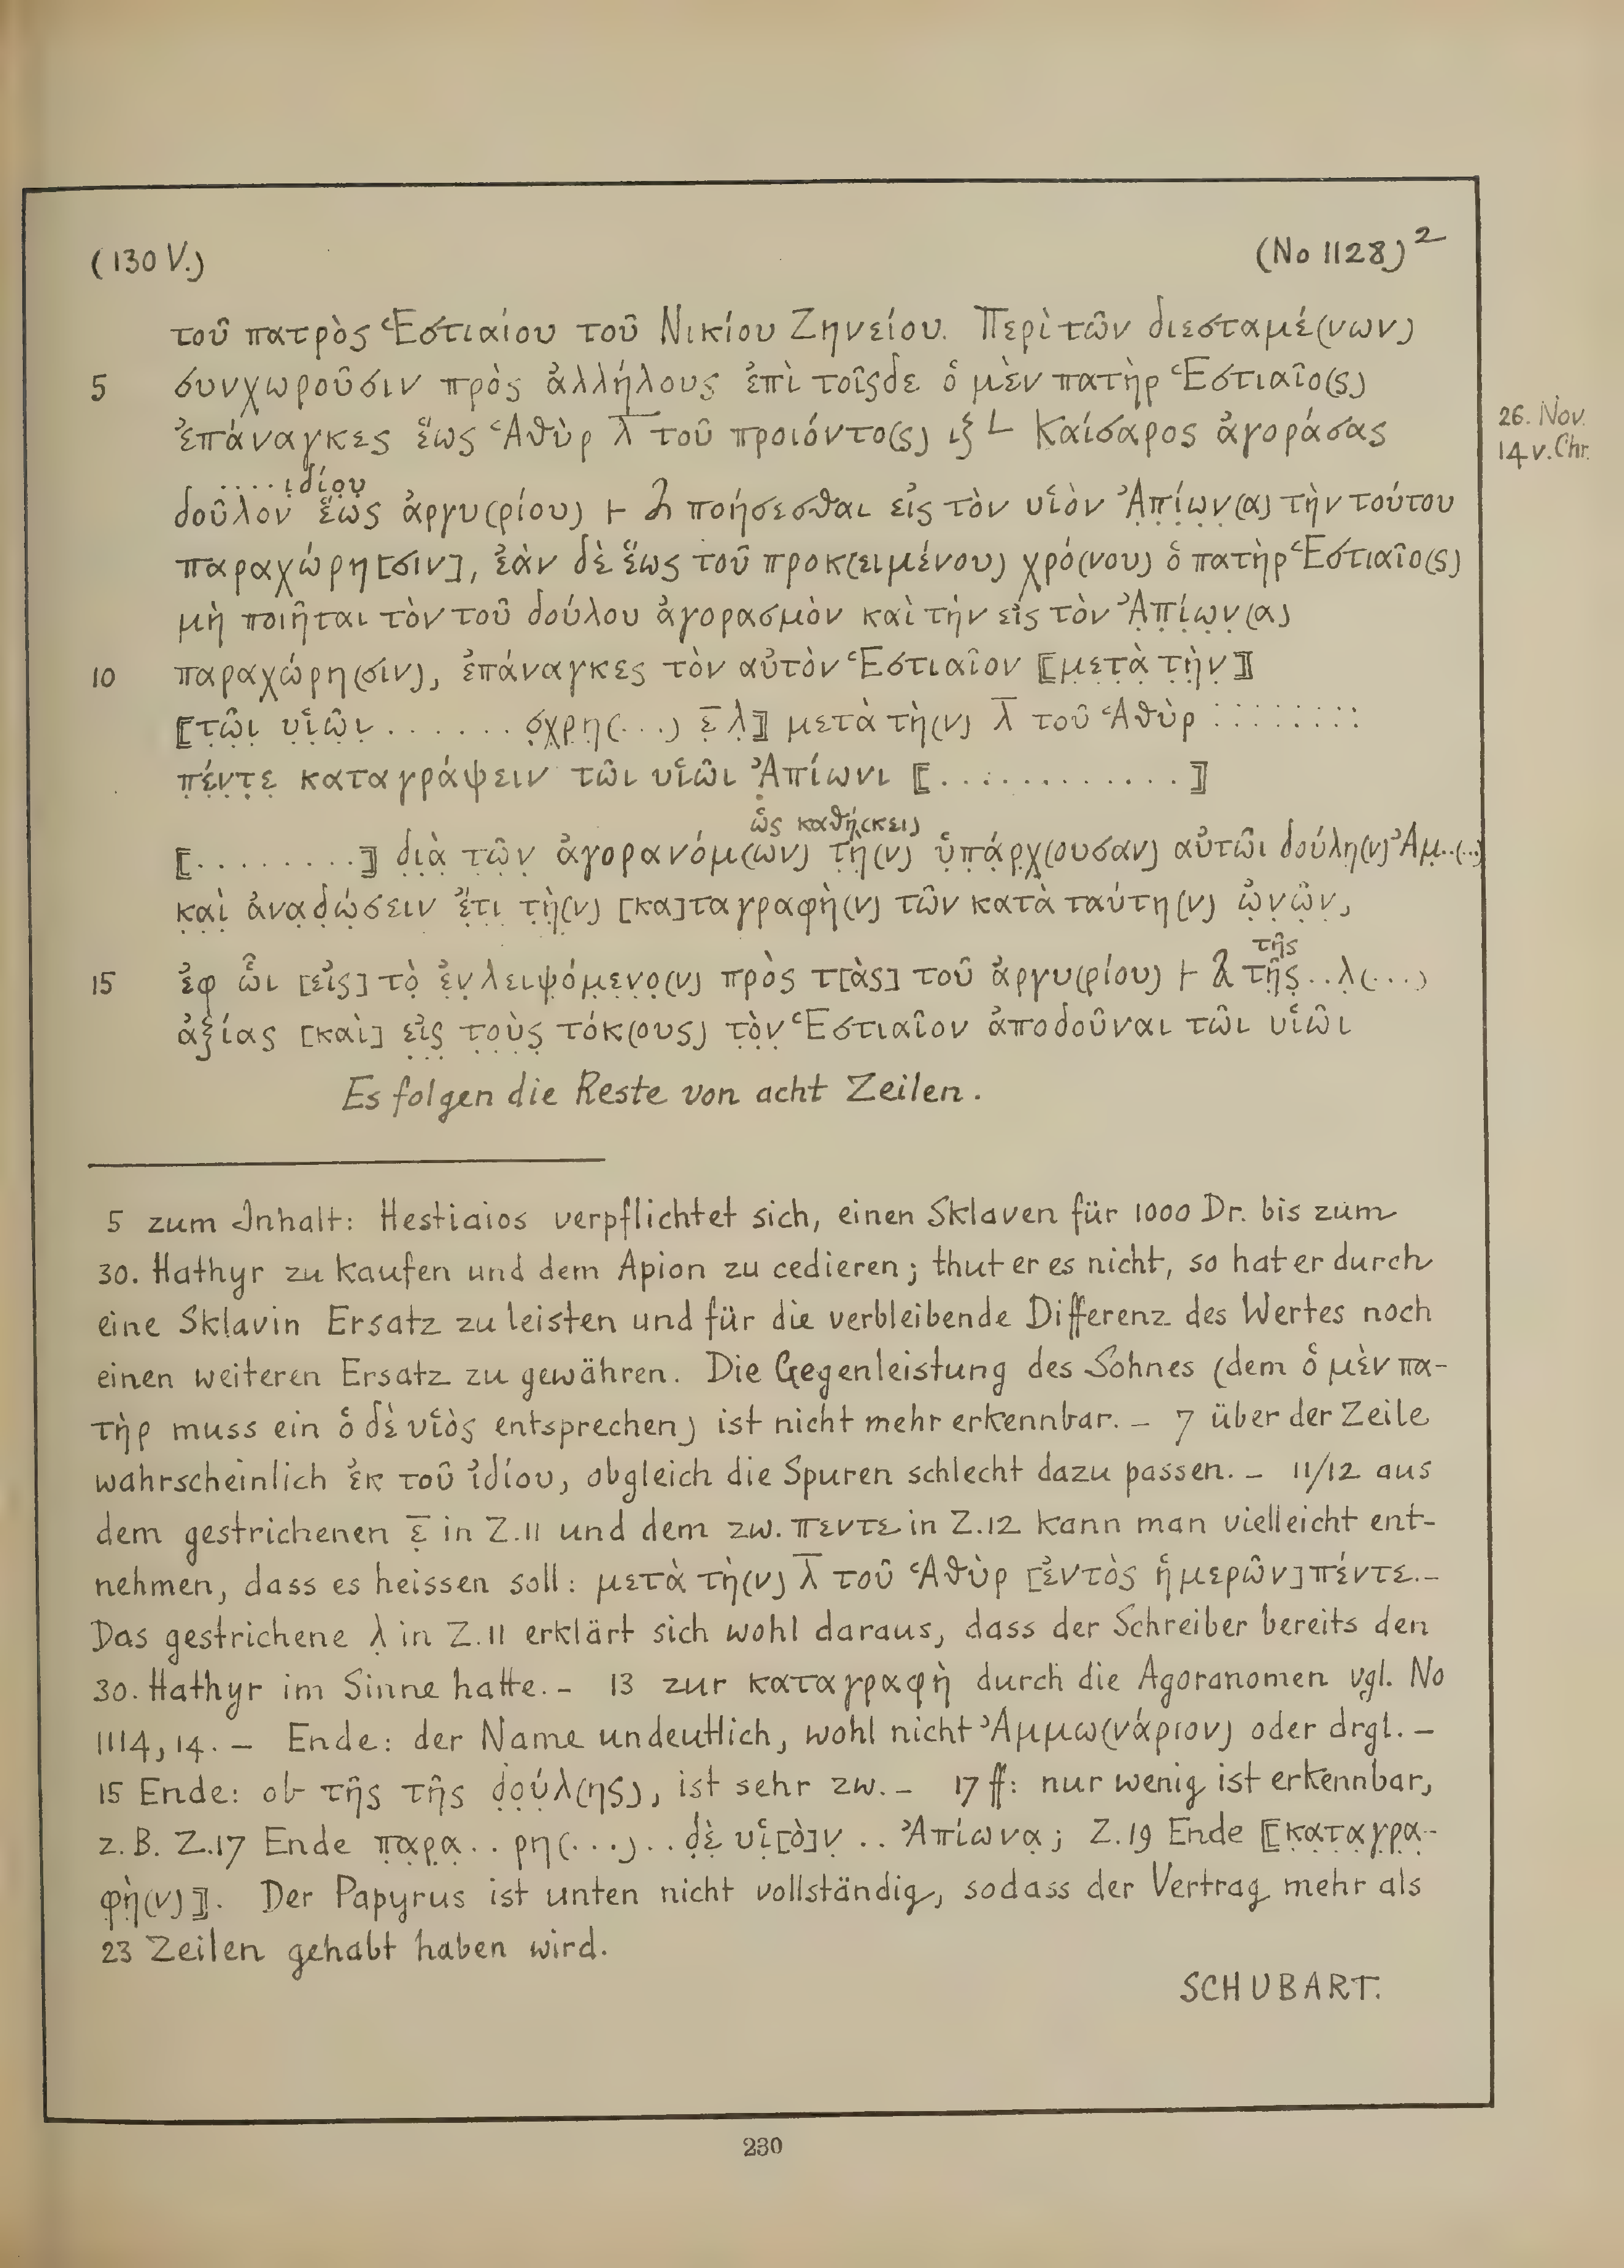 (130 V.) (No 1128)²
τοῦ πατρὸς Ἑστιαίου τοῦ Νικίου Ζηνείου. Περὶ τῶν διεσταμέ(νων)
5 συνχωροῦσιν πρὸς ἀλλήλους ἐπὶ τοῖςδε ὁ μὲν πατὴρ Ἑστιαῖο(ς)
ἐπάναγκες ἕως Ἁθὺρ λ̅ τοῦ προιόντο(ς) ιξ L Καίσαρος ἀγοράσας
26. Nov.
14 v. Chr.
....ι̣δίο̣υ̣
δοῦλον ἕως ἀργυ(ρίου) ⊢ Ⲁ ποήσεσθαι εἰς τὸν υἱὸν Ἀ̣π̣ί̣ω̣ν̣(α) τὴν τούτου
παραχώρη[σιν], ἐὰν δὲ ἕως τοῦ προκ(ειμένου) χρό(νου) ὁ πατὴρ Ἑστιαῖο(ς)
μὴ ποιῆται τὸν τοῦ δούλου ἀγορασμὸν καὶ τὴν εἰς τὸν Ἀ̣π̣ί̣ω̣ν̣(α)
10 παραχώρη(σιν), ἐπάναγκες τὸν αὐτὸν Ἑστιαῖον ⟦μ̣ε̣τ̣ὰ̣ τ̣ὴ̣ν̣⟧
⟦τ̣ῶ̣ι̣ υ̣ἱ̣ῶ̣ι̣ ....... ο̣χ̣ρ̣η̣(...) ε̣̅ λ̣⟧ μετὰ τὴ(ν) λ̅ τοῦ Ἁθὺρ ........
π̣έ̣ν̣τ̣ε̣ καταγράψειν τῶι υἱῶι Ἀ̣πίωνι ⟦............⟧
ὡς καθή̣(κει)
⟦........⟧ δ̣ι̣ὰ̣ τ̣ῶ̣ν̣ ἀγορανόμ(ων) τ̣ὴ̣(ν) ὑ̣π̣ά̣ρ̣χ̣(ουσαν) αὐτῶι δούλη(ν) Ἀμ̣..(...)
κ̣α̣ὶ̣ ἀ̣ν̣α̣δ̣ώ̣σ̣ειν ἔ̣τ̣ι̣ τ̣ὴ̣(ν) [κα]ταγραφὴ(ν) τῶν κατὰ ταύτη(ν) ὠ̣ν̣ῶ̣ν̣,
τῆς
15 ἐφ ὧι [εἰς] τὸ̣ ἐ̣ν̣λειψ̣ό̣μ̣ε̣ν̣ο̣(ν) πρὸς τ[ὰς] τοῦ ἀργυ(ρίου) ⊢ Ⲁ τ̣ῆ̣ς̣..λ̣(...)
ἀξίας [καὶ] ε̣ἰ̣ς̣ τ̣ο̣ὺ̣ς̣ τόκ(ους) τ̣ὸ̣ν̣ Ἑστιαῖον ἀποδοῦναι τῶι υἱῶι
Es folgen die Reste von acht Zeilen.
5 zum Inhalt: Hestiaios verpflichtet sich, einen Sklaven für 1000 Dr. bis zum
30. Hathyr zu kaufen und dem Apion zu cedieren; thut er es nicht, so hat er durch
eine Sklavin Ersatz zu leisten und für die verbleibende Differenz des Wertes noch
einen weiteren Ersatz zu gewähren. Die Gegenleistung des Sohnes (dem ὁ μὲν πα-
τὴρ muss ein ὁ δὲ υἱὸς entsprechen) ist nicht mehr erkennbar. – 7 über der Zeile
wahrscheinlich ἐκ τοῦ ἰδίου, obgleich die Spuren schlecht dazu passen. – 11/12 aus
dem gestrichenen ε̣̅ in Z. 11 und dem zw. πεντε in Z. 12 kann man vielleicht ent-
nehmen, dass es heissen soll: μετὰ τὴ(ν) λ̅ τοῦ Ἁθὺρ [ἐντὸς ἡμερῶν] πέντε. –
Das gestrichene λ in Z. 11 erklärt sich wohl daraus, dass der Schreiber bereits den
30. Hathyr im Sinne hatte. – 13 zur καταγραφὴ durch die Agoranomen vgl. No
1114, 14. – Ende: der Name undeutlich, wohl nicht Ἀμμω(νάριον) oder drgl. –
15 Ende: ob τῆς τῆς δ̣ο̣ύ̣λ(ης), ist sehr zw. – 17 ff: nur wenig ist erkennbar,
z. B. Z. 17 Ende π̣α̣ρ̣α̣.. ρη(...).. δ̣ὲ̣ υἱ̣[ὸ]ν̣ .. Ἀπίωνα̣; Z. 19 Ende ⟦κ̣α̣τ̣α̣γ̣ρ̣α̣-
φ̣ὴ̣(ν)⟧. Der Papyrus ist unten nicht vollständig, sodass der Vertrag mehr als
23 Zeilen gehabt haben wird.
SCHUBART.
230